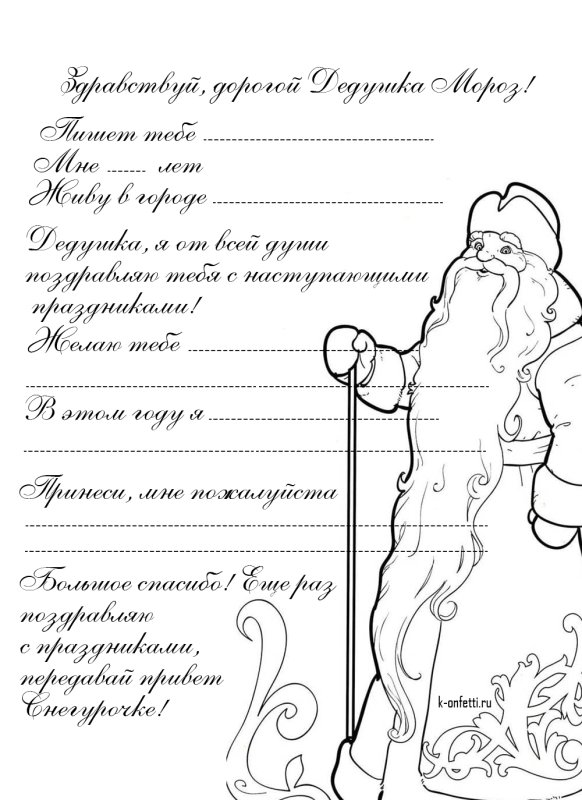 Здравствуй, дорогой Дедушка Мороз!
Пишет тебе
Мне лет
Живу в городе
Дедушка, я от всей души
поздравляю тебя с наступающими
праздниками!
Желаю тебе
В этом году я
Принеси, мне пожалуйста
Большое спасибо! Еще раз
поздравляю
с праздниками,
передавай привет
Снегурочке!
k-onfetti.ru